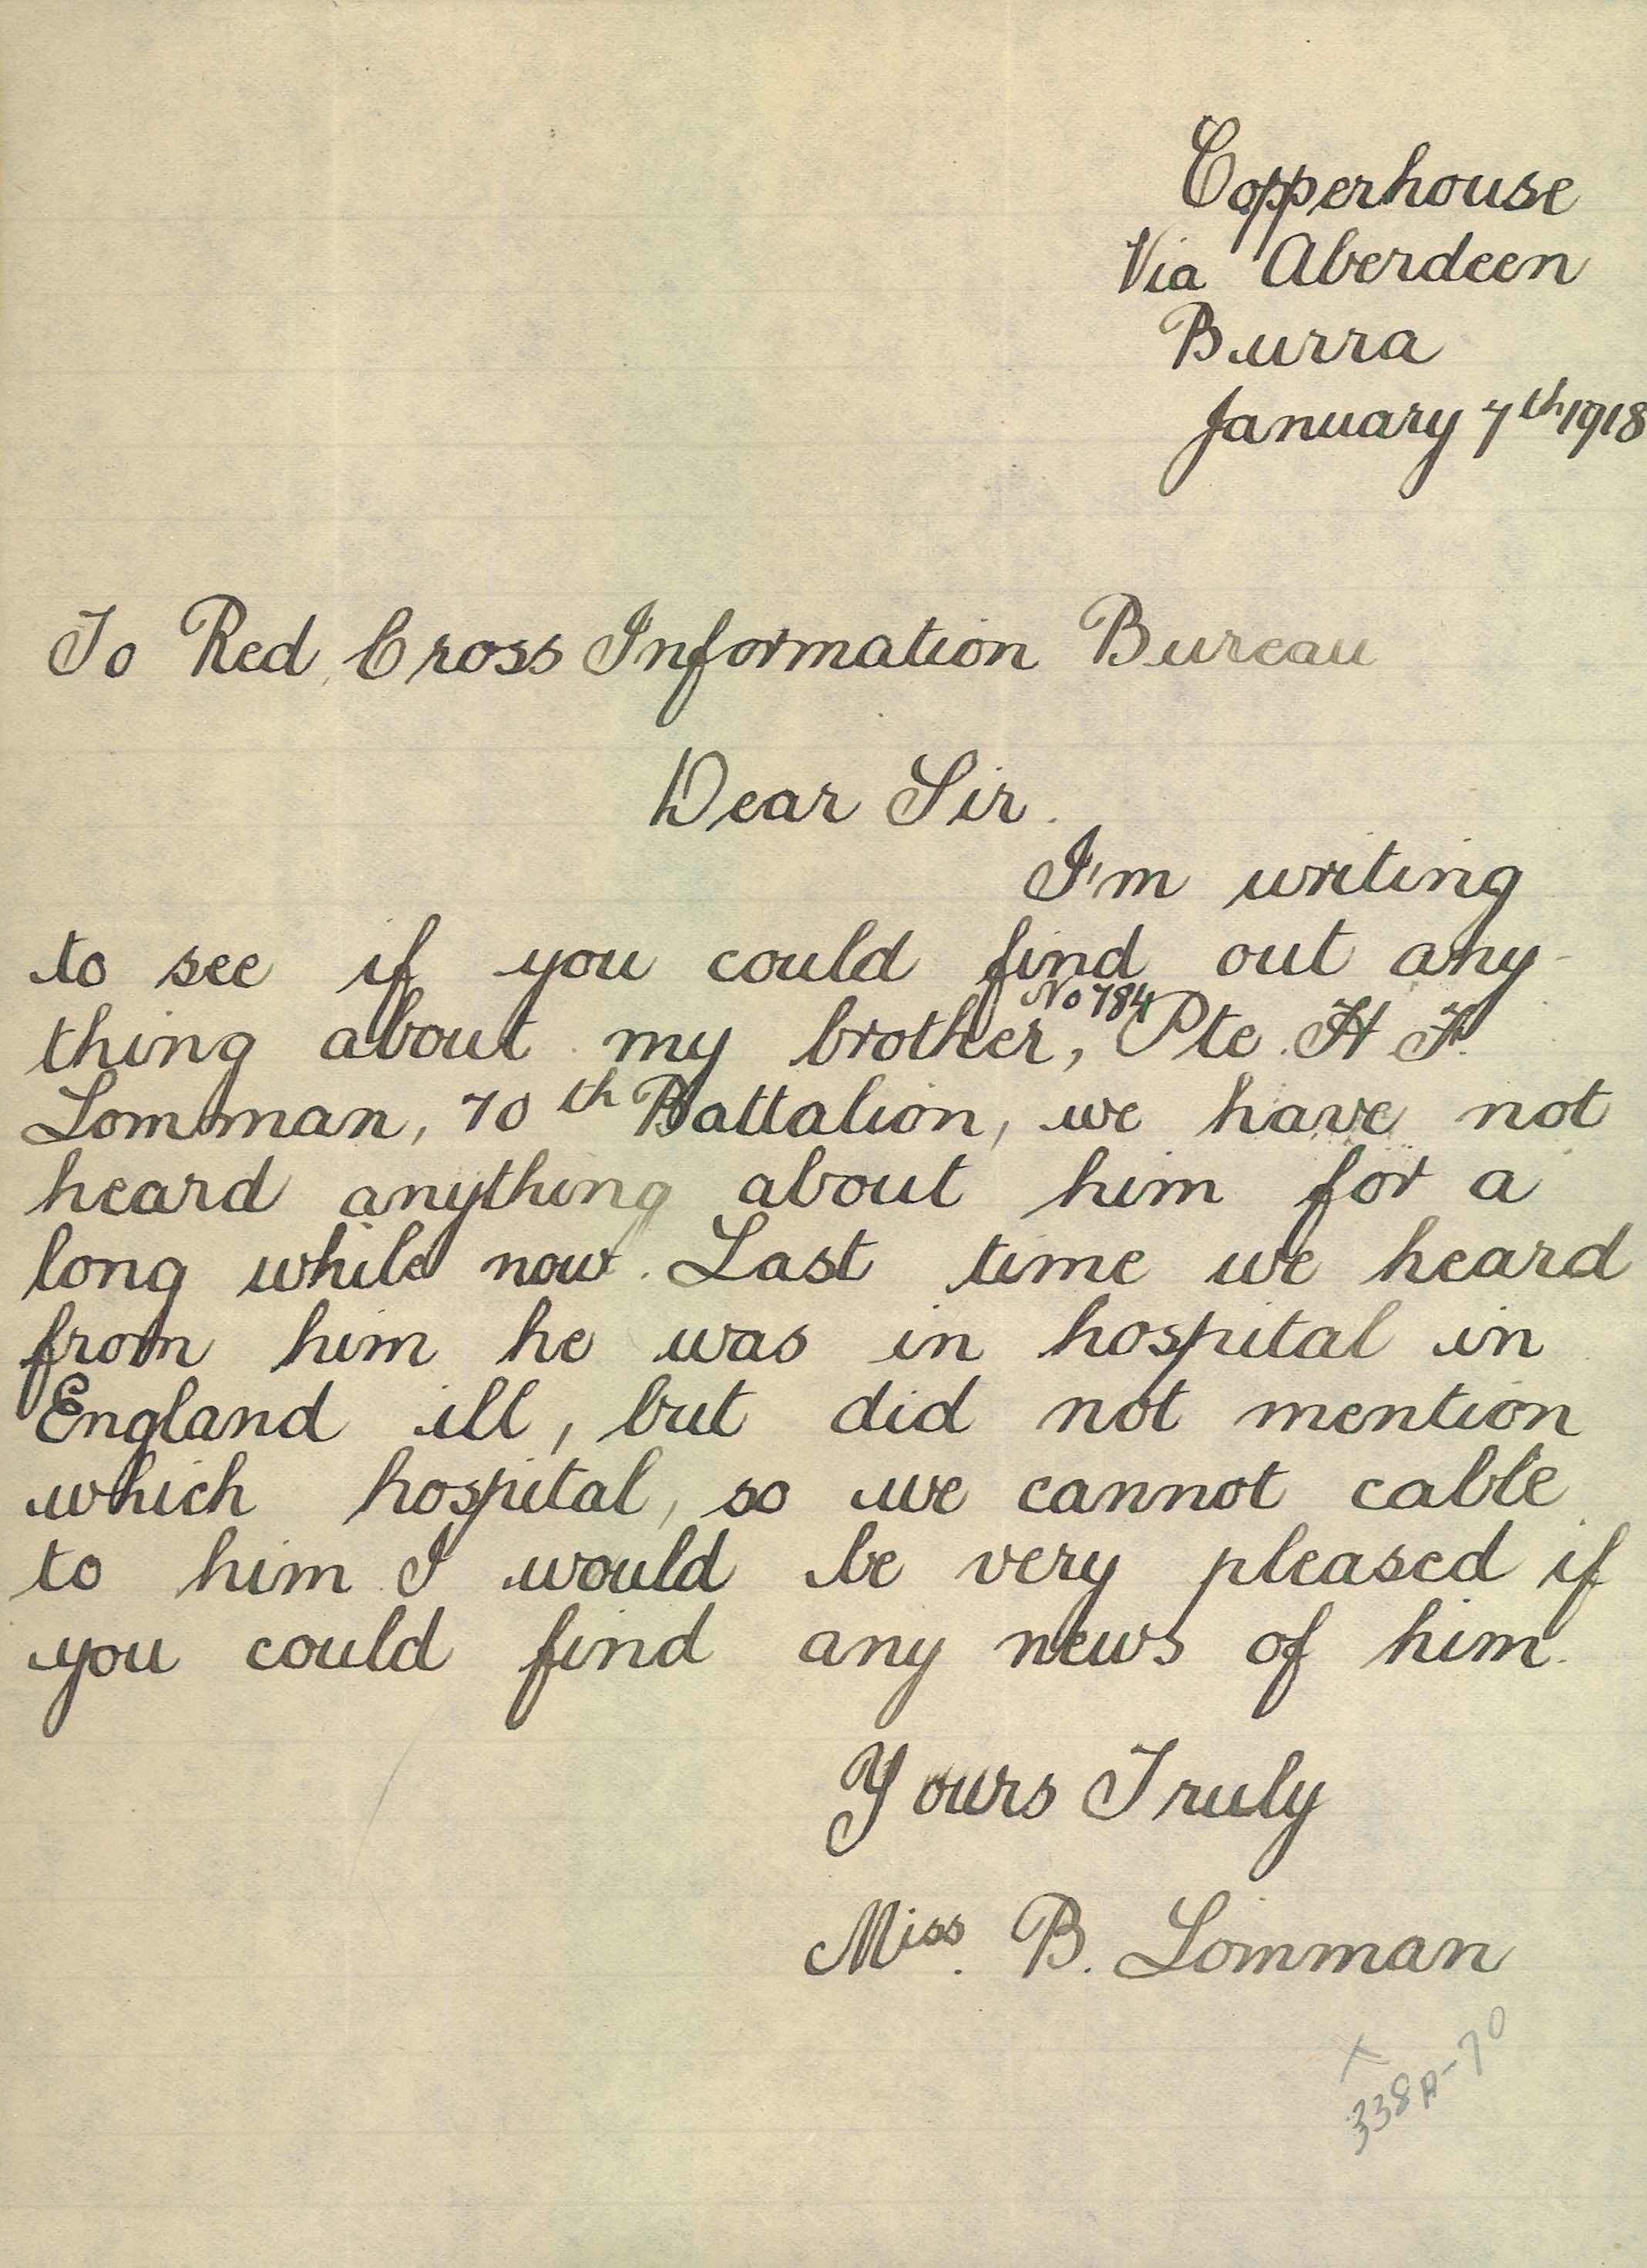 Copperhouse
Via Aberdeen
Burra
January 7th 1918
To Red Cross Information Bureau
Dear Sir.
I'm writing
to see if you could find out any-
thing about my brother, No 784 Pte. H F.
Lomman, 70th Battalion, we have not
heard anything about him for a
long while now. Last time we heard
from him he was in hospital in
England ill, but did not mention
which hospital, so we cannot cable
to him. I would be very pleased if
you could find any news of him.
Yours Truly
Miss. B. Lomman
X
338A-70